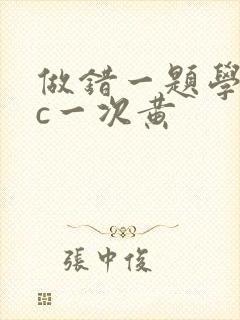 做錯一題學
c一次黃
張中俊